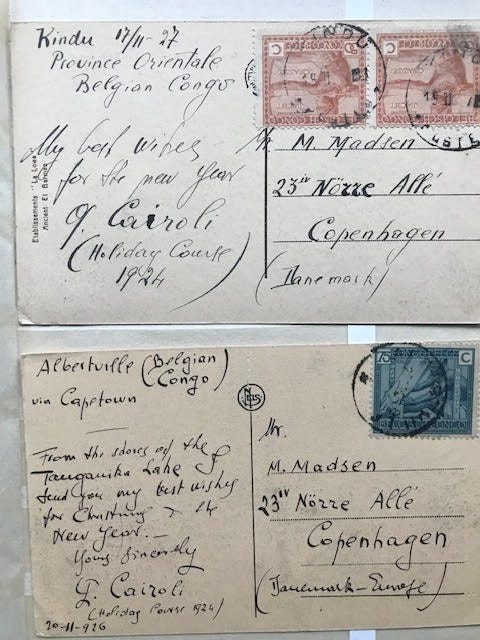 Kindu 17/11-27
Province Orientale
Belgian Congo
My best wishes
for the new Year
G. Cairoli
(Holiday Course
1924)
Etablissements "La Lowa"
Ancient Et
KINDU
BELGISCH CONGO
Mr M. Madsen
23IV Nörre Allé
Copenhagen
(Danemark)
Albertville (Belgian
Congo)
via Capetown
From the shores of the
Tanganika Lake I
send you my best wishes
for Christmas & the
New Year.—
Yours sincerely
G. Cairoli
(Holiday Course 1924)
20-11-926
75 C
Mr.
M. Madsen
23IV Nörre Allé
Copenhagen
(Danemark-Europe)